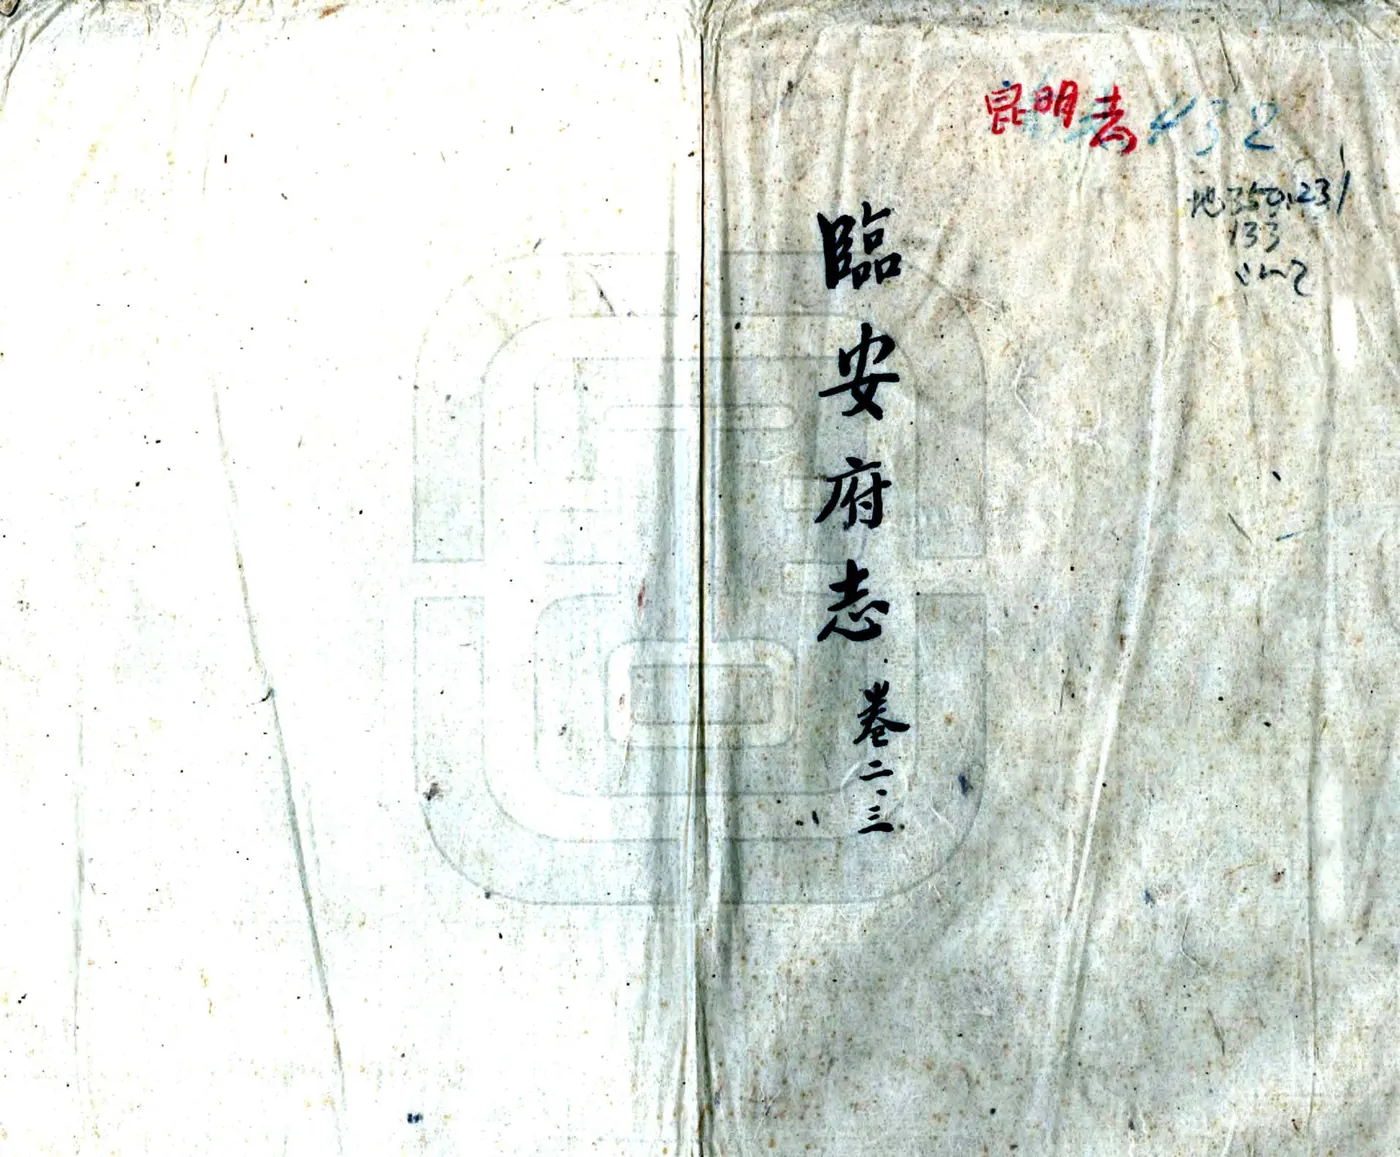 昆明 432
地350.231
133
臨安府志 卷二·三